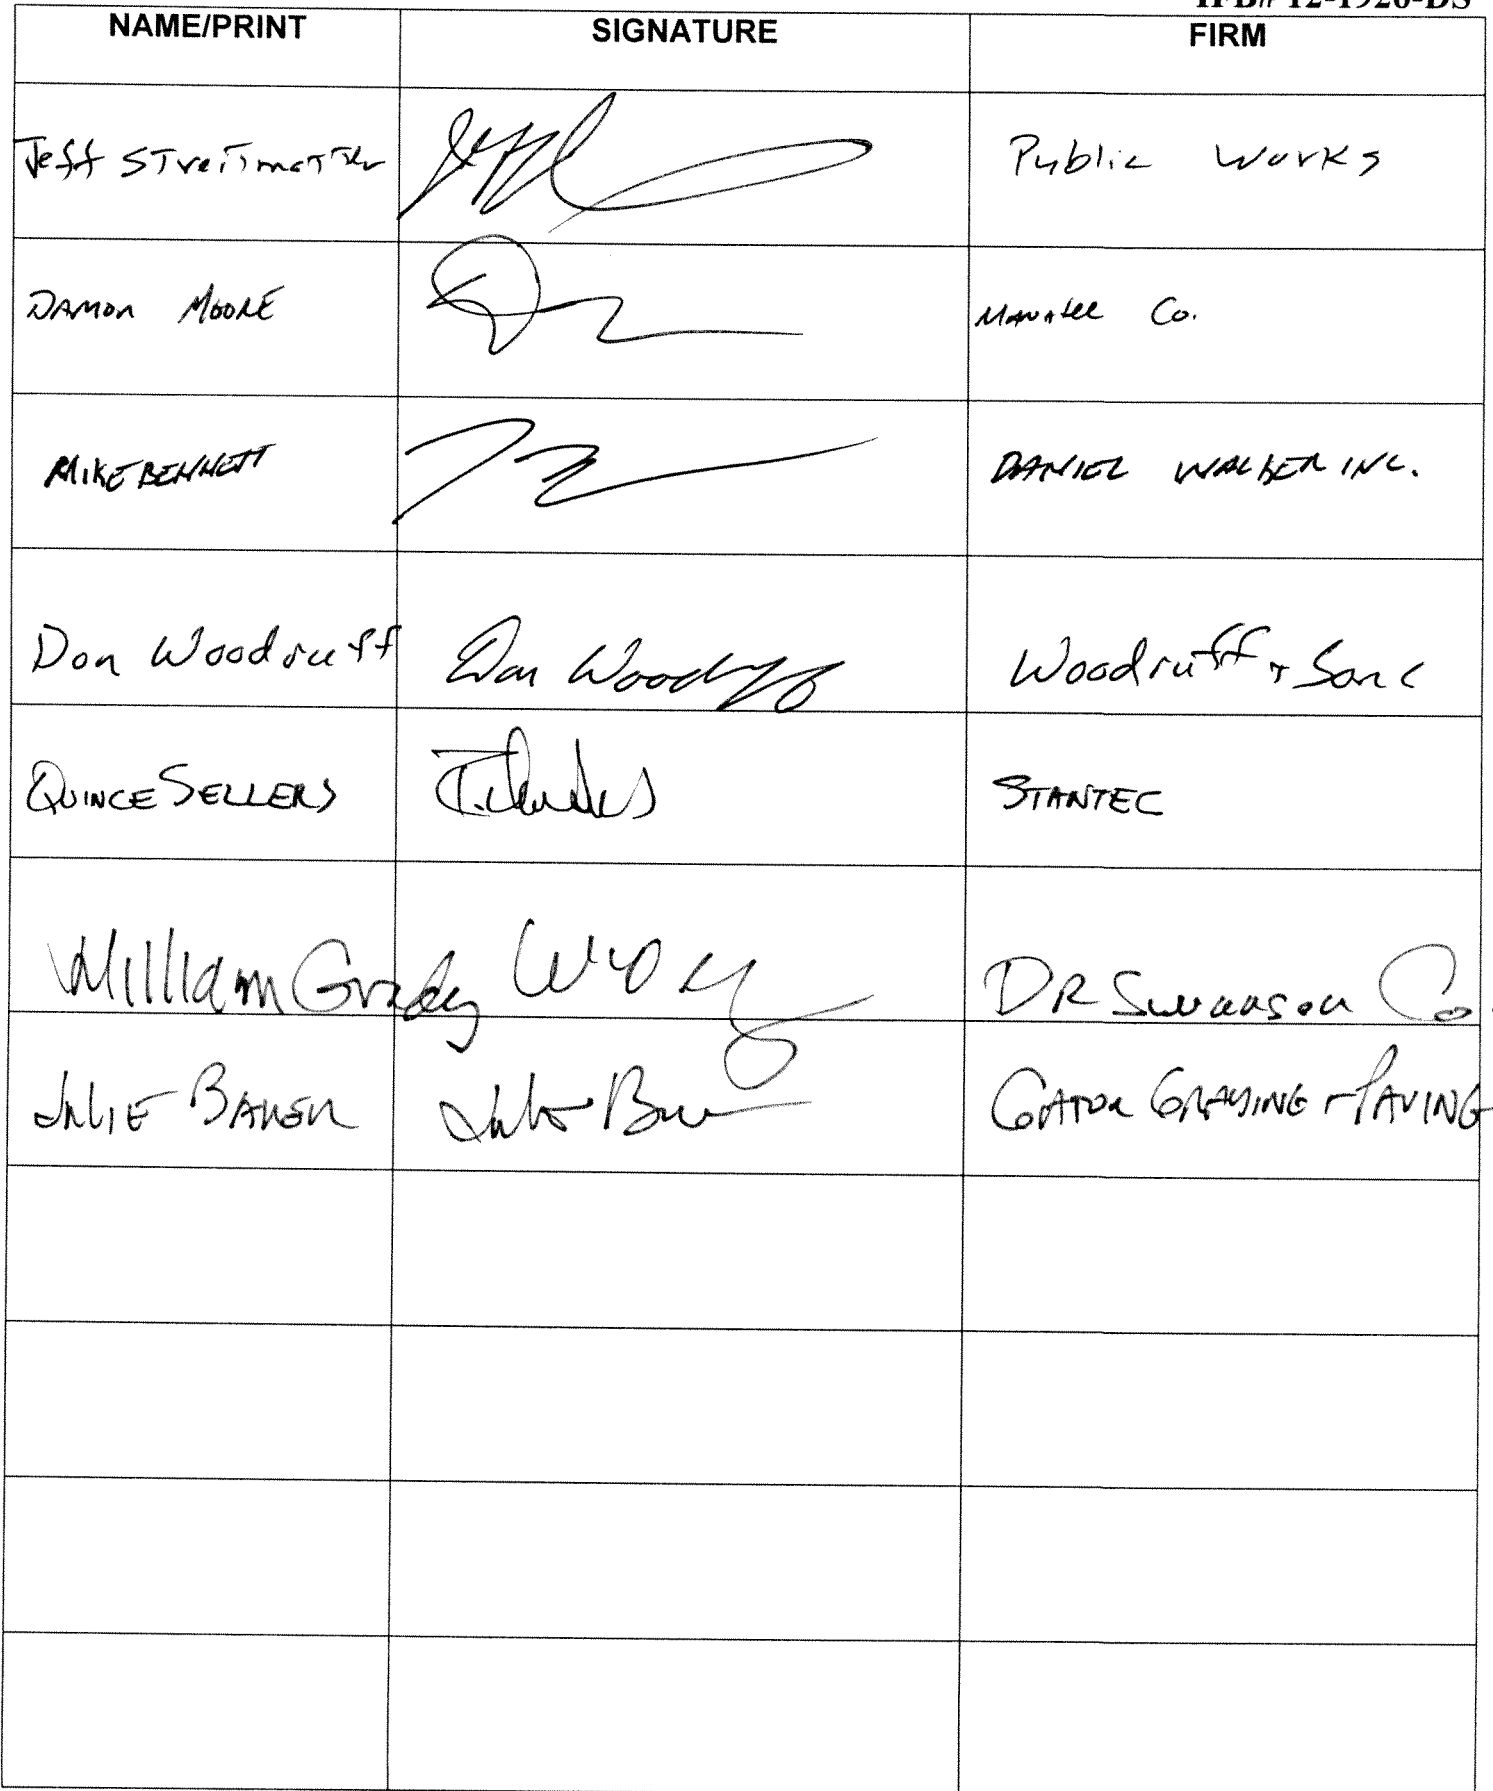 NAME/PRINT SIGNATURE FIRM
Jeff Streitmatter Public Works
DAMON MOORE Manatee Co.
MIKE BENNETT DANIEL WALKER INC.
Don Woodruff Don Woodruff Woodruff + Sons
QUINCE SELLERS STANTEC
William Grady DR Swanson Co.
JULIE BAKER Julie GATOR GRADING + PAVING